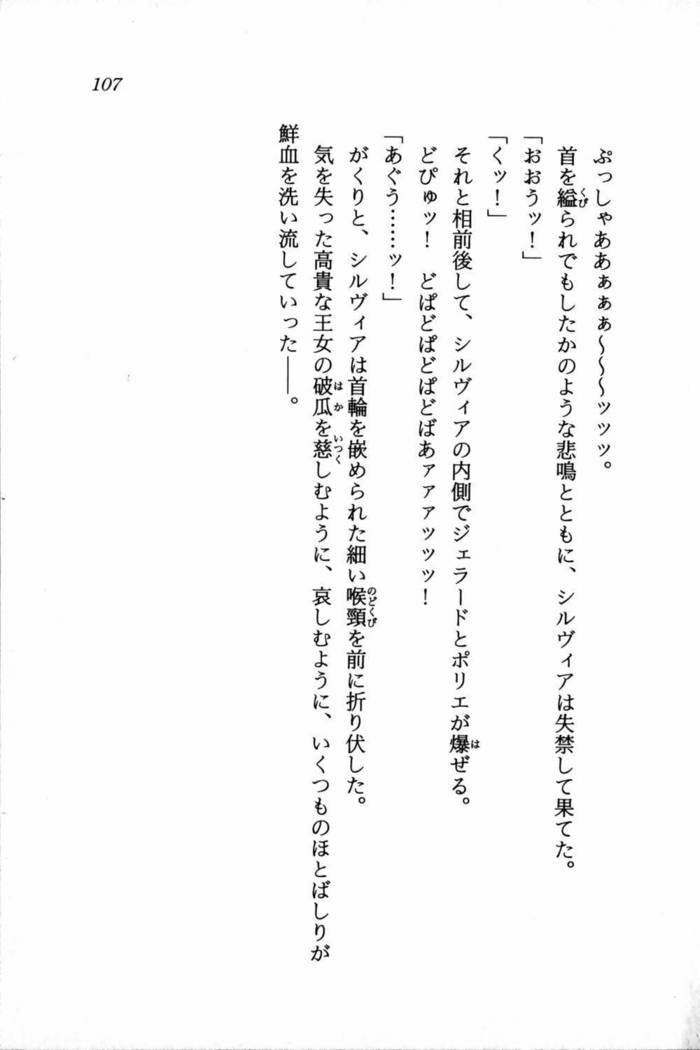 107
ぷっしゃああぁぁぁ〜〜〜ッッッ。
首を縊られでもしたかのような悲鳴とともに、シルヴィアは失禁して果てた。
「おおうッ！」
「くッ！」
それと相前後して、シルヴィアの内側でジェラードとポリエが爆ぜる。
どぴゅッ！　どぱどぱどぱどばあァァァッッッ！
「あぐう……ッ！」
がくりと、シルヴィアは首輪を嵌められた細い喉頸を前に折り伏した。
気を失った高貴な王女の破瓜を慈しむように、哀しむように、いくつものほとばしりが
鮮血を洗い流していった――。